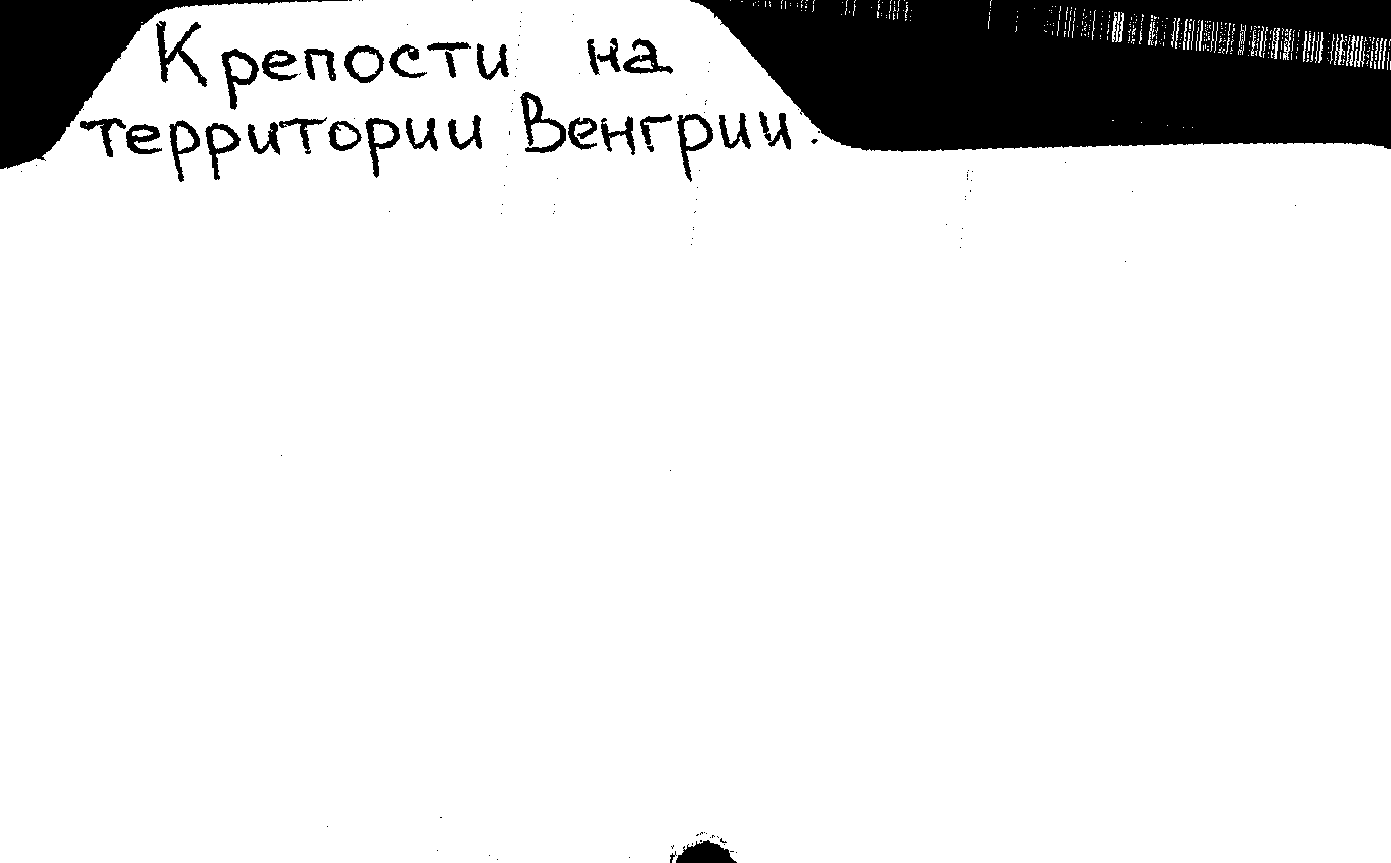 Крепости на
территории Венгрии.